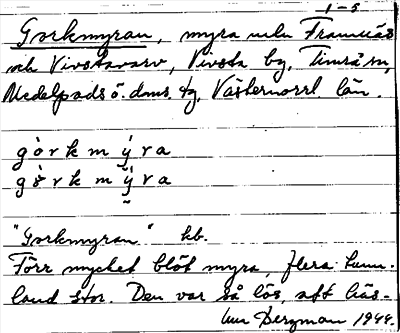 1-5
Gorkmyran, myra mln Framnäs
och Vivstavarv, Vivsta by, Timrå sn,
Medelpads ö. dms. tg, Västernorrl län.
gòrkmýra
gòrkmýra
"Gorkmyran" kb.
Förr mycket blöt myra, flera tunn-
land stor. Den var så lös, att häs-
Bergman 1944.